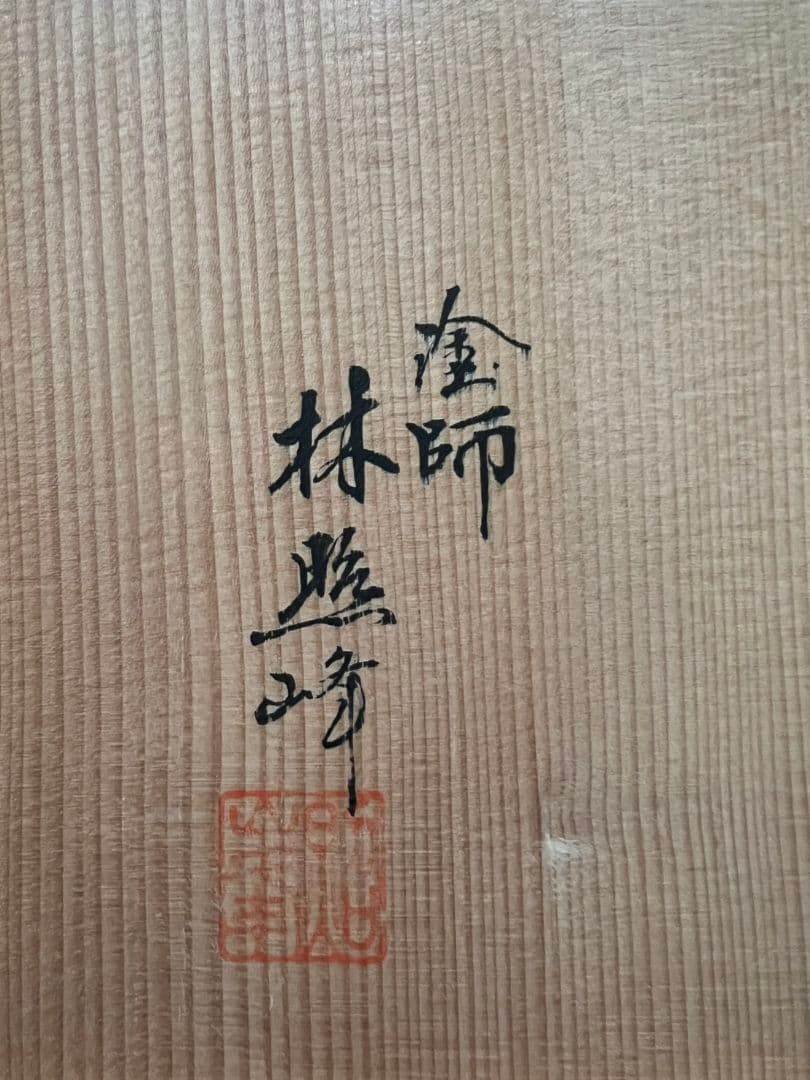 塗師
林照峰